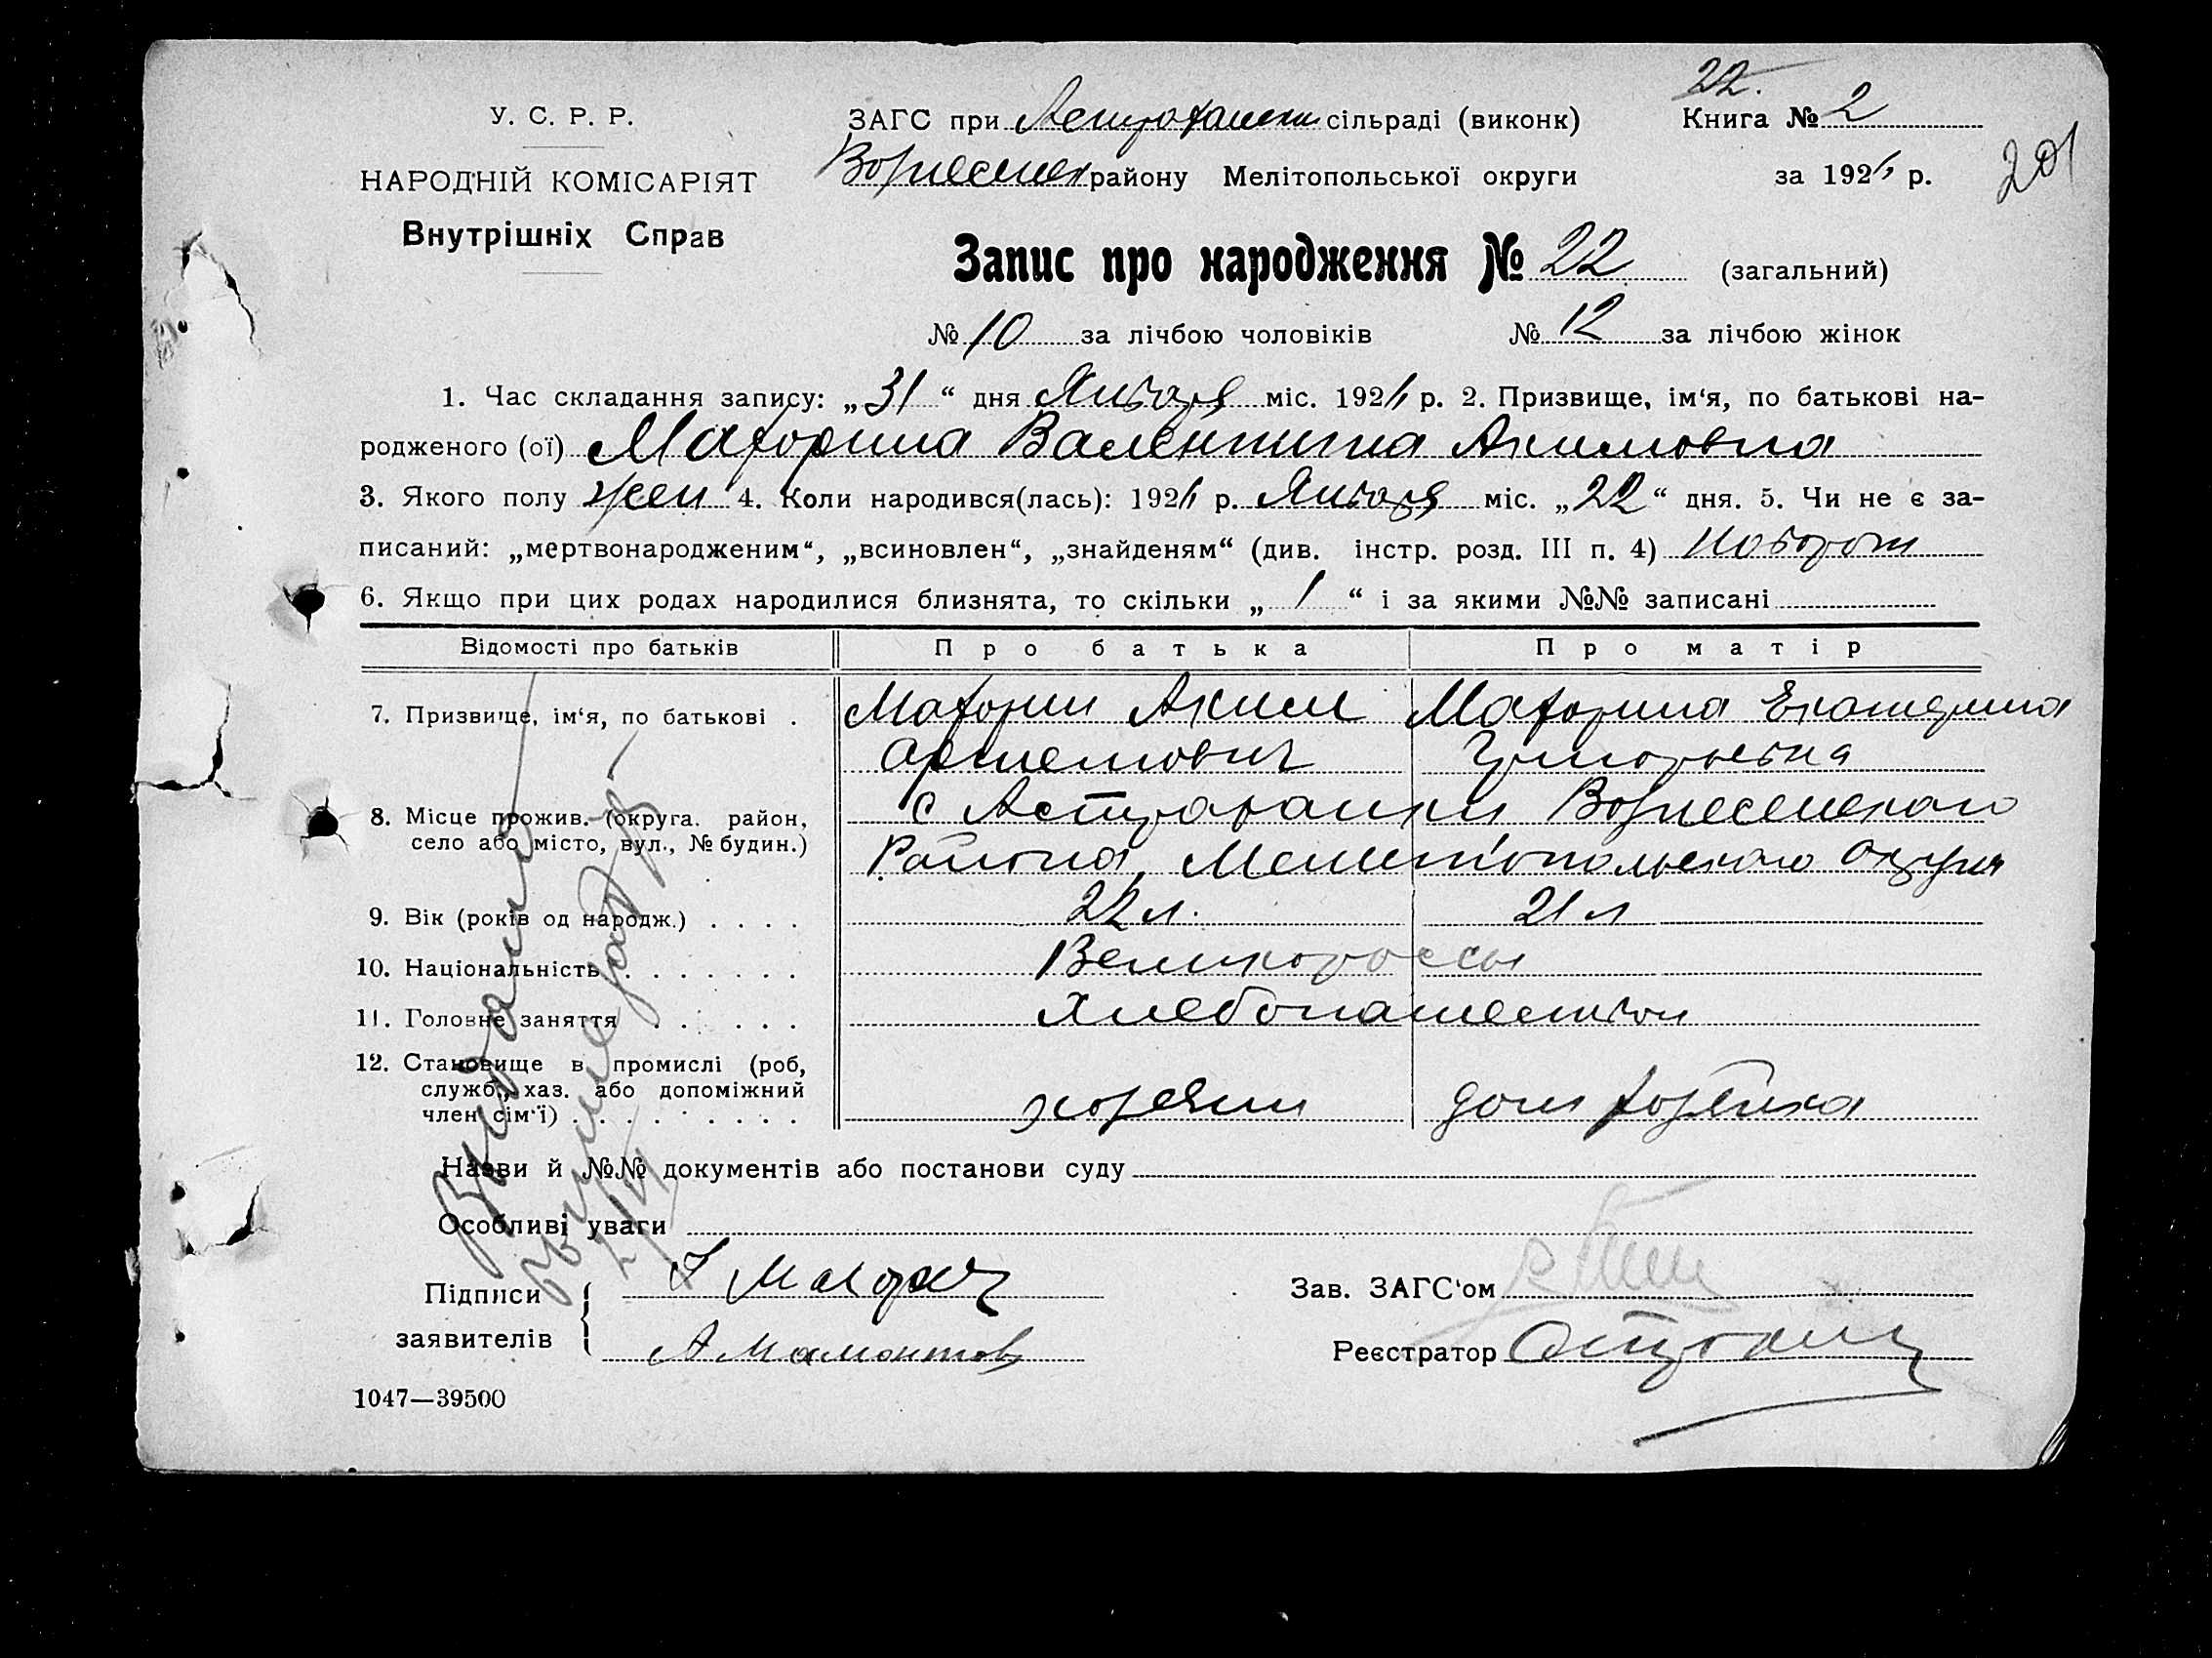 22.
У. С. Р. Р.
НАРОДНІЙ КОМІСАРІЯТ
Внутрішніх Справ
ЗАГС при Астрахански сільраді (виконк)
Книга № 2
Вознесенск району Мелітопольської округи
за 192 р.
201
Запис про народження № 22 (загальний)
№ 10 за лічбою чоловіків № 12 за лічбою жінок
1. Час складання запису: „31“ дня Января міс. 192 р. 2. Призвище, ім‘я, по батькові на-
родженого (ої) Махорина Валентина Акимовна
3. Якого полу жен 4. Коли народився(лась): 192 р. Января міс. „22“ дня. 5. Чи не є за-
писаний: „мертвонародженим“, „всиновлен“, „знайденям“ (див. інстр. розд. III п. 4)
6. Якщо при цих родах народилися близнята, то скільки „1“ і за якими №№ записані
Відомості про батьків Про батька Про матір
7. Призвище, ім‘я, по батькові . Махорин Аким Махорина Екатерина
Артемович Григорьевна
8. Місце прожив. (округа. район,
село або місто, вул., № будин.)
с Астраханки Вознесенского
Района, Мелитопольского Округа
9. Вік (років од народж.) . . . . 22 л. 21 л
10. Національність . . . . . . . Великороссы
11. Головне заняття . . . . . . Хлебопашество
12. Становище в промислі (роб,
служб., хаз. або допоміжний
член сім‘ї) . . . . . . . .
хозяин дом хозяйка
Назви й №№ документів або постанови суду
Особливі уваги
Підписи
заявителів
А Мамонтов
Зав. ЗАГС‘ом
Реєстратор
1047—39500